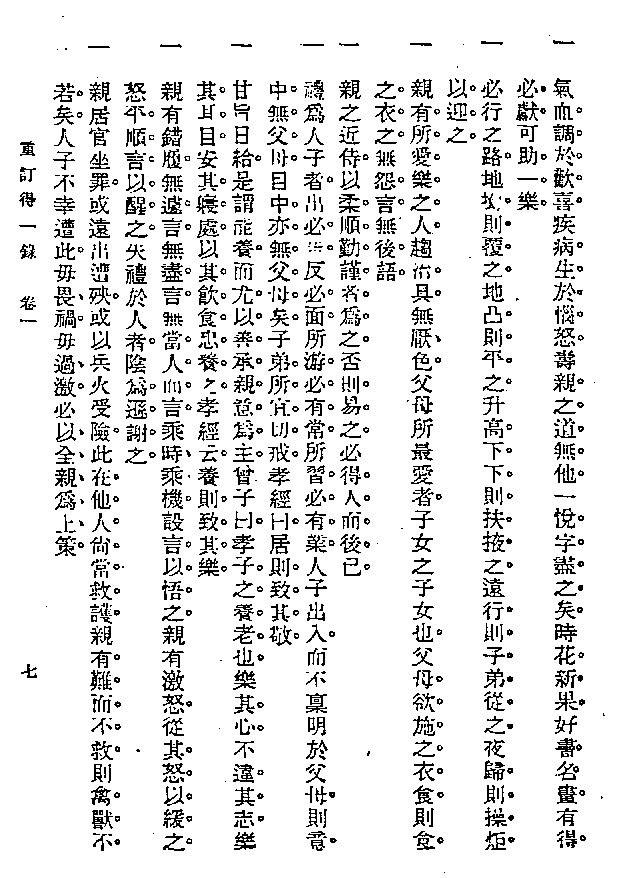 一氣血調於歡喜疾病生於惱怒壽親之道無他一悅字盡之矣時花新果好書名畫有得
必獻可助一樂
一必行之路地坎則覆之地凸則平之升高下下則扶掖之遠行則子弟從之夜歸則操炬
以迎之
一親有所愛樂之人趨治具無厭色父母所最愛者子女之子女也父母欲施之衣食則食
之衣之無怨言無後語
一親之近侍以柔順勤謹者為之否則易之必得人而後已
一禮為人子者出必告反必面所游必有常所習必有業人子出入而不稟明於父母則意
中無父母目中亦無父母矣子弟所宜切戒孝經曰居則致其敬
一甘旨日給是謂能養而尤以善承親意為主曾子曰孝子之養老也樂其心不違其志樂
其耳目安其寢處以其飲食忠養之孝經云養則致其樂
一親有錯履無遽言無盡言無當人而言乘時乘機設言以悟之親有激怒從其怒以緩之
怒平順言以醒之失禮於人者陰為遜謝之
一親居官坐罪或遠出遭殃或以兵火受險此在他人尙當救護親有難而不救則禽獸不
若矣人子不幸遭此毋畏禍毋過激必以全親為上策
重訂得一錄 卷一 七